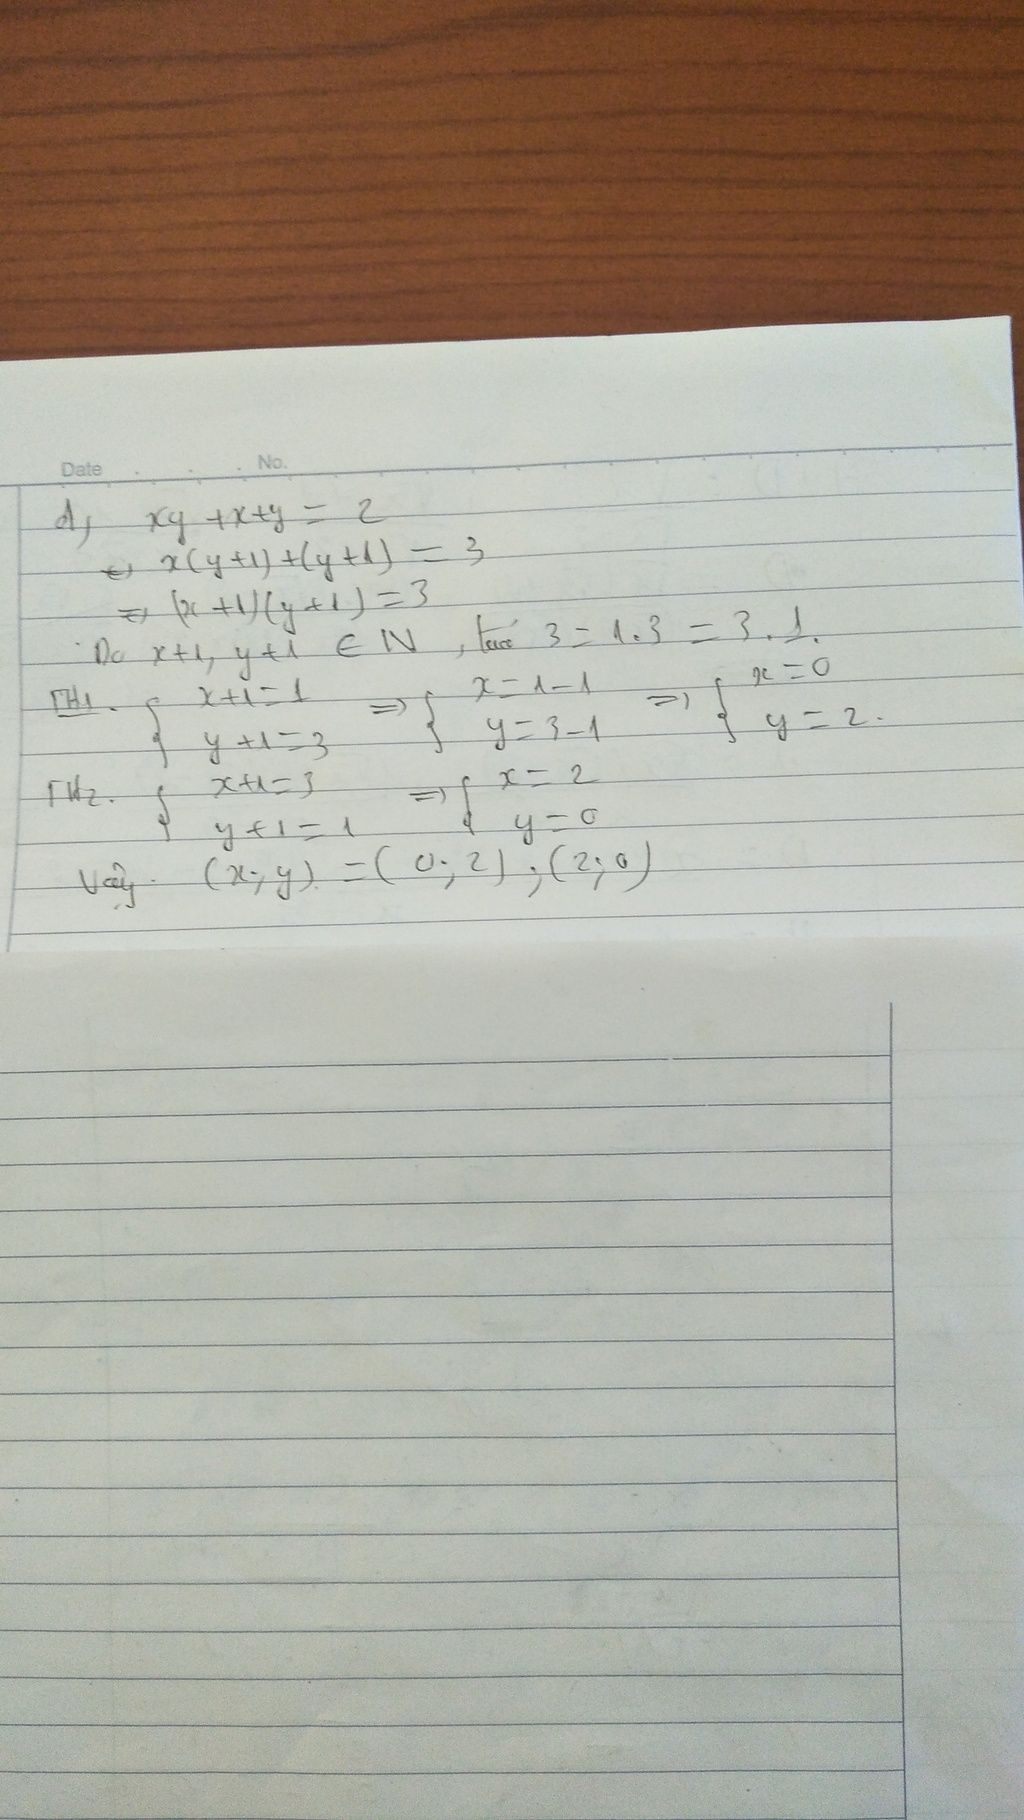 Date . . . No.
d, xy + x + y = 2
⇔ x(y+1)+(y+1) = 3
⇒ (x+1)(y+1) = 3
Do x+1, y+1 ∈ N, 3 = 1.3 = 3.1.
TH1. { x+1=1 y+1=3 => { x=1-1 y=3-1 => { x=0 y=2.
TH2. { x+1=3 y+1=1 => { x=2 y=0
Vậy (x;y) = (0;2);(2;0)